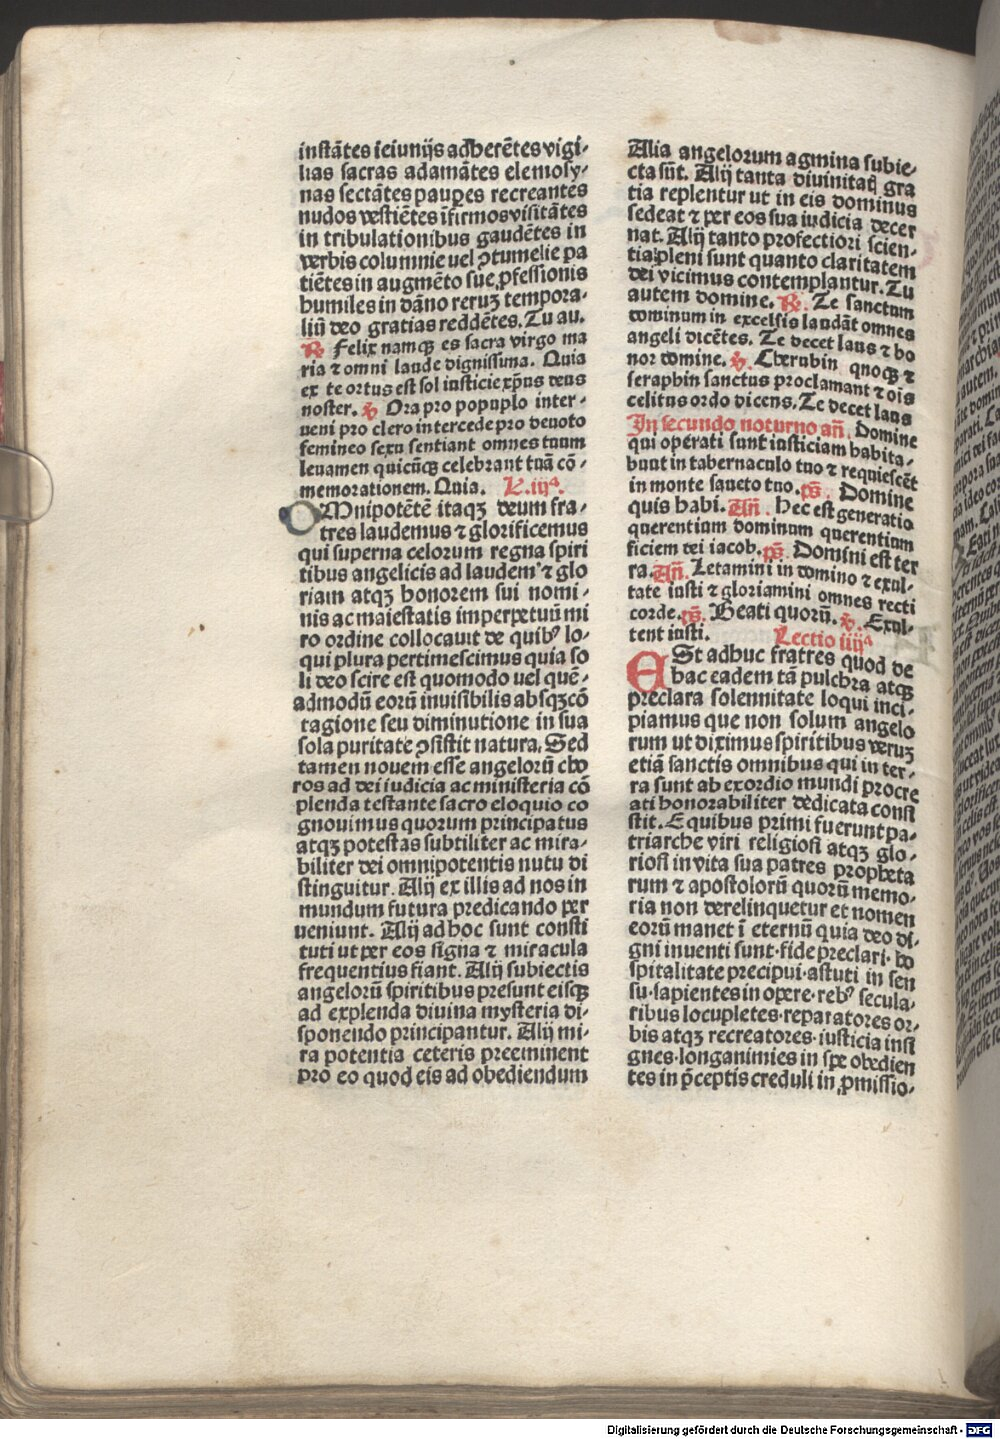 instātes ieiunijs adherētes vigi-
lias sacras adamātes elemosy-
nas sectātes pauꝑes recreantes
nudos vestiētes īfirmos visitātes
in tribulationibus gaudētes in
verbis columnie uel ꝯtumelie pa
tiētes in augmēto sue ꝓfessionis
humiles in dāno reruꝫ tempora-
liū deo gratias reddētes. Tu au.
℟. Felix namqꝫ es sacra virgo ma
ria ⁊ omni laude dignissima. Quia
ex te ortus est sol iusticie xp̄us deus
noster. ℣ Ora pro popuplo inter-
ueni pro clero intercede pro deuoto
femineo sexu sentiant omnes tuum
leuamen quicūqꝫ celebrant tuā cō-
memorationem. Quia. L. iijª.
OMnipotētē itaqꝫ deum fra-
tres laudemus ⁊ glorificemus
qui superna celorum regna spiri
tibus angelicis ad laudem ⁊ glo
riam atqꝫ honorem sui nomi-
nis ac maiestatis imperpetuū mi
ro ordine collocauit de quibꝰ lo-
qui plura pertimescimus quia so
li deo scire est quomodo uel quē-
admodū eorū inuisibilis absqꝫ cō
tagione seu diminutione in sua
sola puritate ꝯsistit natura. Sed
tamen nouem esse angelorū cho
ros ad dei iudicia ac ministeria cō
plenda testante sacro eloquio co
gnouimus quorum principatus
atqꝫ potestas subtiliter ac mira-
biliter dei omnipotentis nutu di
stinguitur. Alij ex illis ad nos in
mundum futura predicando per
ueniunt. Alij ad hoc sunt consti
tuti ut per eos signa ⁊ miracula
frequentius fiant. Alij subiectis
angelorū spiritibus presunt eisqꝫ
ad explenda diuina mysteria di-
sponendo principantur. Alij mi-
ra potentia ceteris preeminent
pro eo quod eis ad obediendum
Alia angelorum agmina subie-
cta sūt. Alij tanta diuinitatꝭ gra
tia replentur ut in eis dominus
sedeat ⁊ per eos sua iudicia decer
nat. Alij tanto profectiori scien-
tia pleni sunt quanto claritatem
dei vicimus contemplantur. Tu
autem domine. ℟. Te sanctum
dominum in excelsis laudāt omnes
angeli dicētes. Te decet laus ⁊ ho
nor domine. ℣. Cherubin quoqꝫ ⁊
seraphin sanctus proclamant ⁊ oīs
celitus ordo dicens. Te decet laus
In secundo noturno an̄. Domine
qui operati sunt iusticiam habita-
bunt in tabernaculo tuo ⁊ requiescēt
in monte saucto tuo. ps̄. Domine
quis habi. An̄. Hec est generatio
querentium dominum querentium
ficiem dei iacob. ps̄. Domini est ter
ra. An̄. Letamini in domino ⁊ exul-
tate iusti ⁊ gloriamini omnes recti
corde. ps̄. Beati quorū. ℣. Exul-
tent iusti. Lectio iiijª
ESt adhuc fratres quod de
hac eadem tā pulchra atqꝫ
preclara solennitate loqui inci-
piamus que non solum angelo
rum ut diximus spiritibus veruꝫ
etiā sanctis omnibus qui in ter-
ra sunt ab exordio mundi procre
ati honorabiliter dedicata consi
stit. E quibus primi fuerunt pa-
triarche viri religiosi atqꝫ glo-
riosi in vita sua patres propheta
rum ⁊ apostolorū quorū memo-
ria non derelinquetur et nomen
eorū manet ī eternū quia deo di-
gni inuenti sunt·fide preclari·ho
spitalitate precipui·astuti in sen
su·sapientes in opere·rebꝰ secula-
ribus locupletes·reparatores or-
bis atqꝫ recreatores·iusticia insi
gnes·longanimies in spe obedien
tes in p̄ceptis creduli in ꝓmissio-
Digitalisierung gefördert durch die Deutsche Forschungsgemeinschaft - DFG